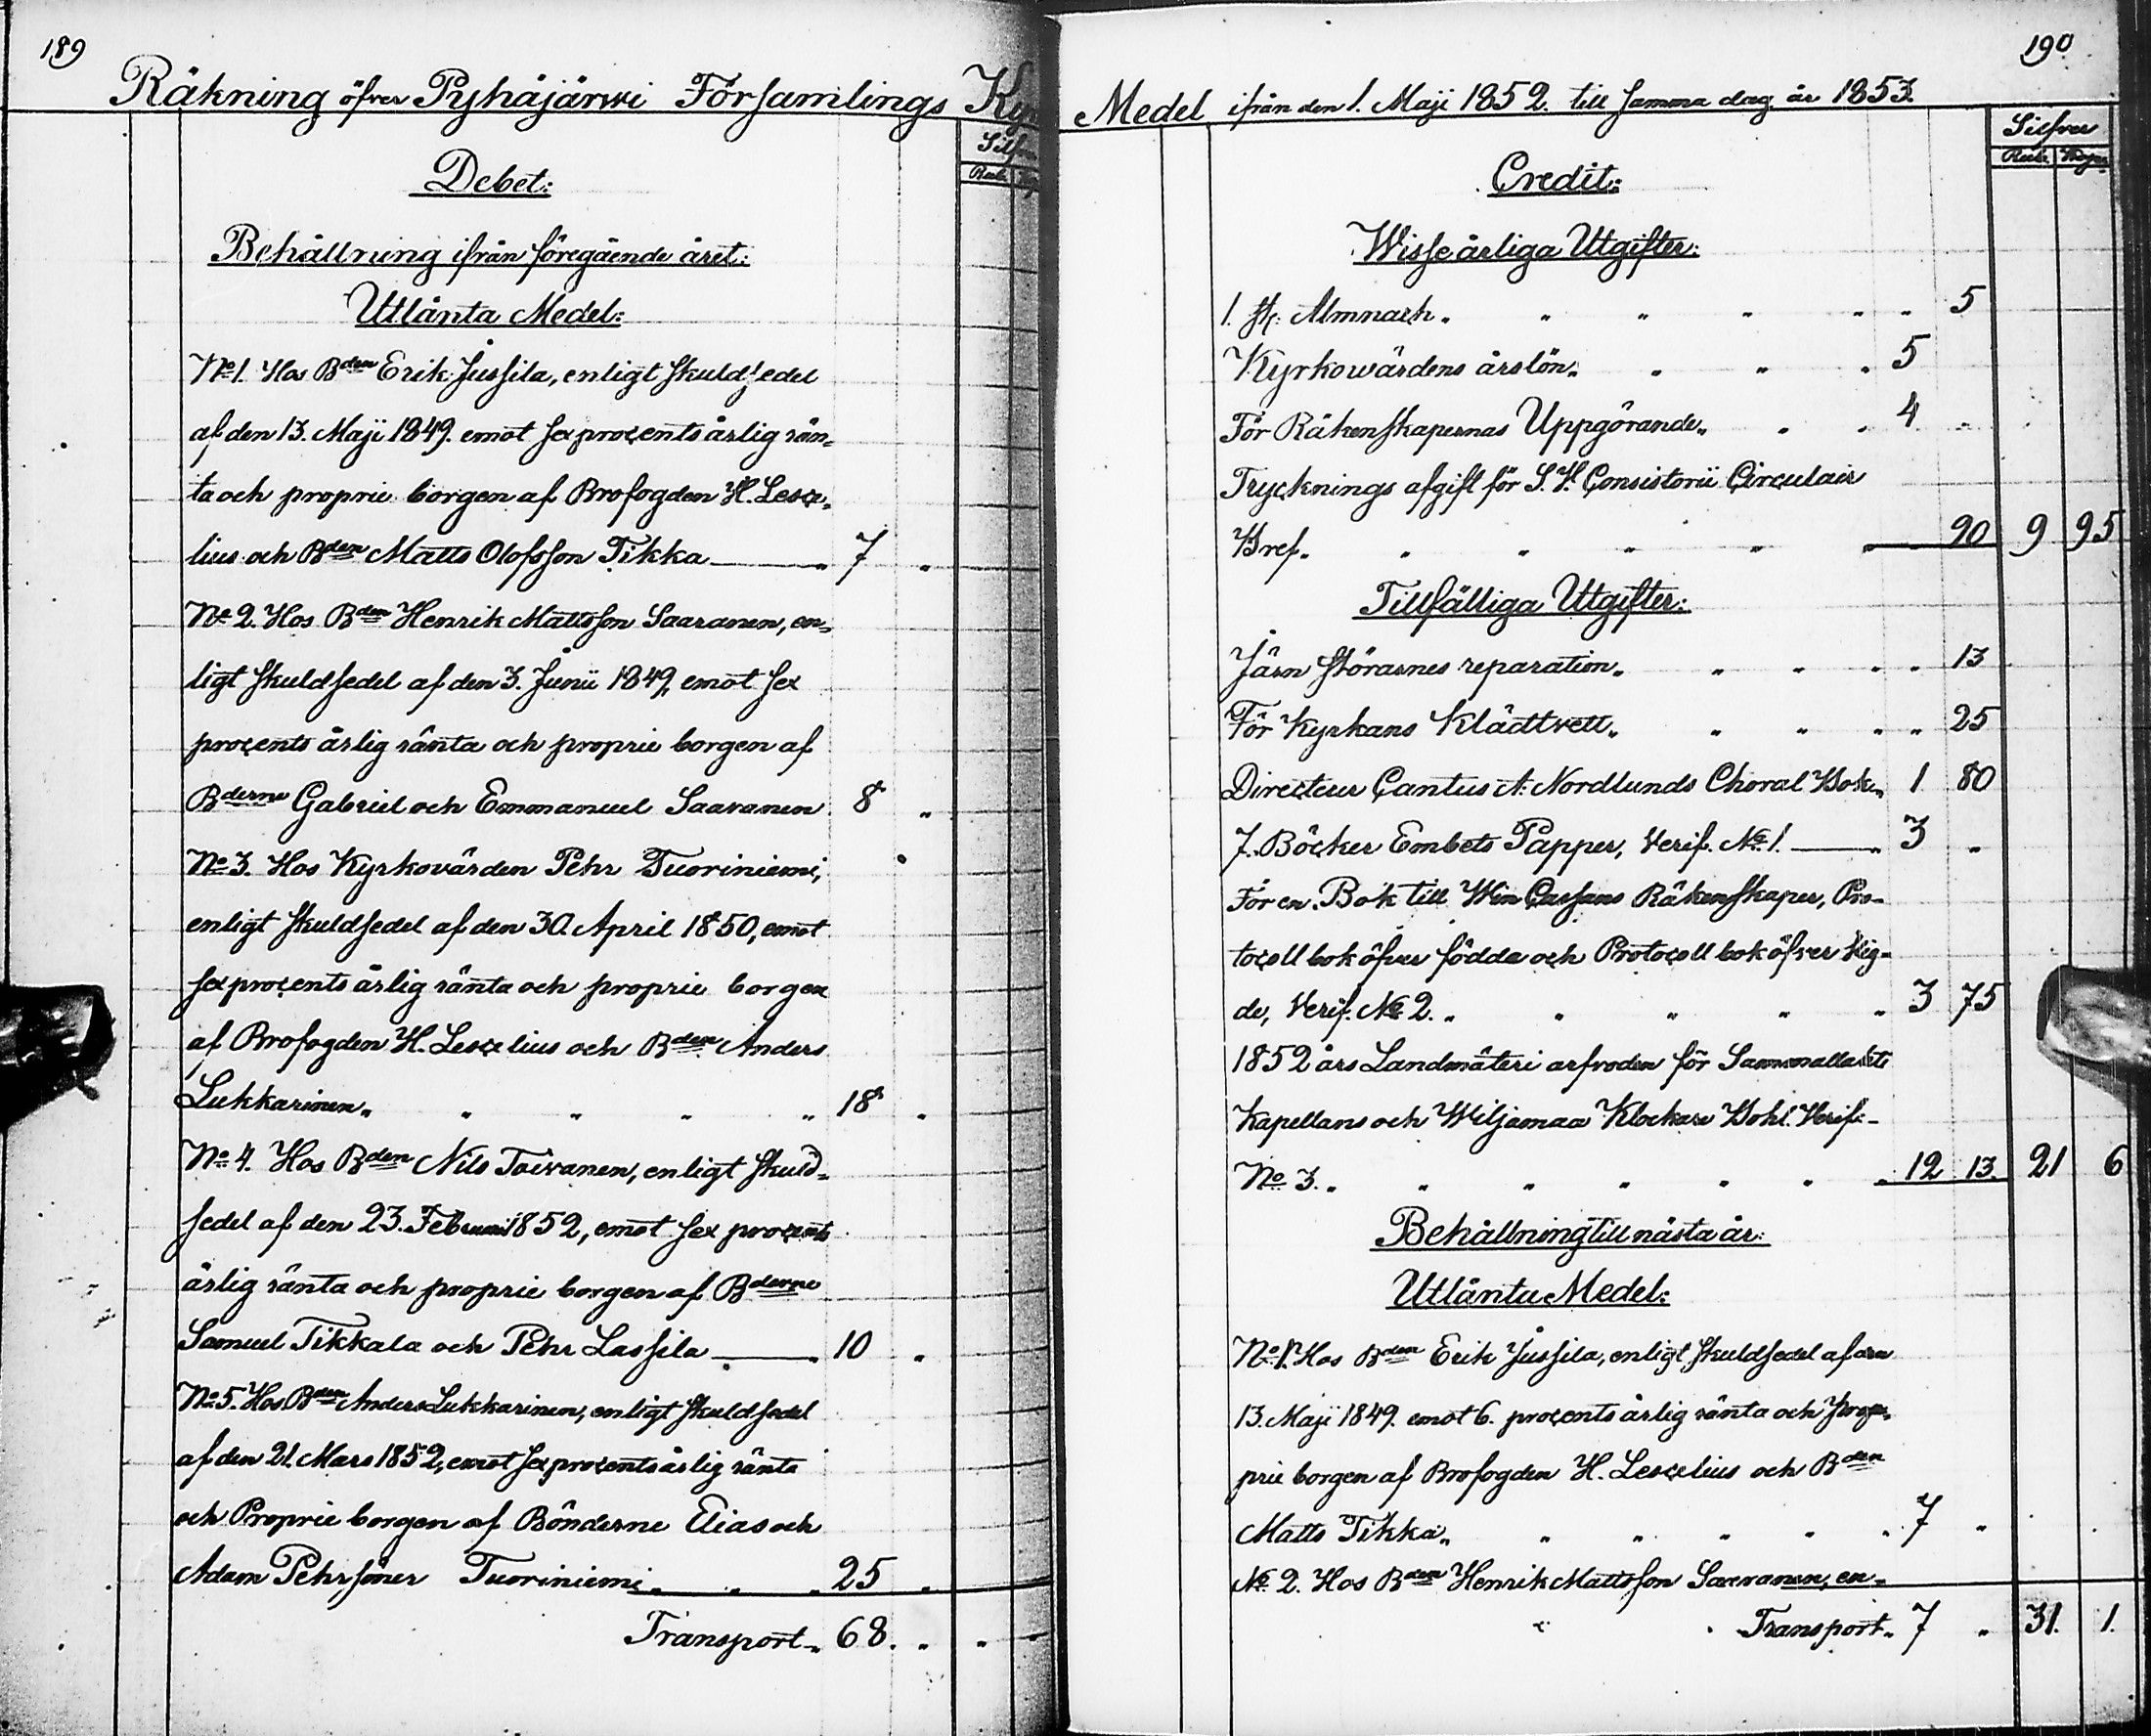 189
Räkning öfver Pyhäjärwi Församlings Ky
Silf
Rub.
Debet:
Behållning ifrån föregående året:
Utlånta Medel:
No 1. Hos Bden Erik Jussila, enligt skuldsedel
af den 13. Maji 1849. emot sex procents årlig rän-
ta och proprie borgen af Brofogden H. Lesce-
lius och Bden Matts Olofsson Tikka 7 "
No 2. Hos Bden Henrik Mattsson Saaranen, en-
ligt skuldsedel af den 3. Junii 1849, emot sex
procents årlig ränta och proprie borgen af
Bderne Gabriel och Emmanuel Saaranen 8 "
No 3. Hos Kyrkovärden Pehr Tuoriniemi,
enligt skuldsedel af den 30. April 1850, emot
sex procents årlig ränta och proprie borgen
af Brofogden H. Lescelius och Bden Anders
Lukkarinen " " " " " 18 "
No 4. Hos Bden Nils Toivanen, enligt skuld-
sedel af den 23. Februari 1852, emot sex procents
årlig ränta och proprie borgen af Bderne
Samuel Tikkala och Pehr Lassila 10 "
No 5. Hos Bden Anders Lukkarinen, enligt skuldsedel
af den 21. Mars 1852, emot sex procents årlig ränta
och Proprie borgen af Bönderne Elias och
Adam Pehrsöner Tuoriniemi " " " 25 "
Transport " 68. " " "
190
Medel ifrån den 1. Maji 1852. till samma dag år 1853.
Silfver
Rub. Kop.
Credit:
Wisse årliga Utgifter:
1. st. Almnach " " " " " " 5
Kyrkowärdens årslön " " " " 5
För Räkenskapernas Uppgörande " " " 4 "
Trycknings afgift för S. V. Consistorii Circulair
Bref " " " " " 90 9 95
Tillfälliga Utgifter:
Järn störarnes reparation " " " " " 13
För Kyrkans Klädtvett " " " " " 25
Directeur Cantus A. Nordlunds Choral Bok " 1 80
7. Böcker Embets Papper, Verif. No 1. 3 "
För en Bok till Win Cassans Räkenskaper, Pro-
tocoll bok öfver födda och Protocoll bok öfver Vig-
de, Verif. No 2. " " " " " 3 75
1852 års Landmäteri arfvoden för Sammallahti
Kapellans och Wiljamaa Klockare Bohl. Verif.
No 3. " " " " " " 12 13. 21 6
Behållning till nästa år:
Utlånta Medel:
No 1. Hos Bden Erik Jussila, enligt skuldsedel af den
13. Maji 1849. emot 6. procents årlig ränta och prop-
prie borgen af Brofogden H. Lescelius och Bden
Matts Tikka " " " " " " 7 "
No 2. Hos Bden Henrik Mattsson Saaranen, en-
Transport " 7 " 31. 1.